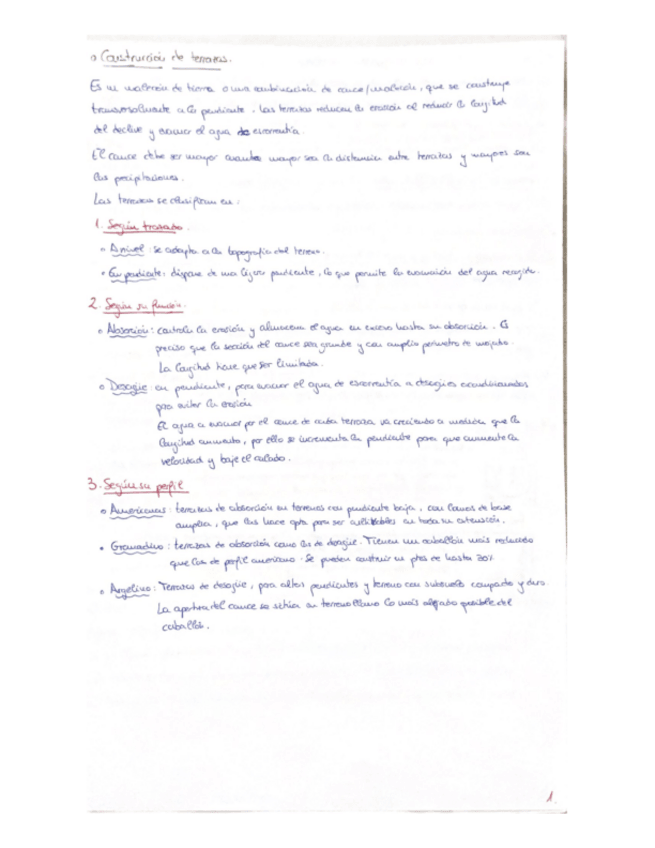 o Construcción de terrazas.
Es un malecón de tierra o una combinación de cauce/malecón, que se construye
transversalmente a la pendiente. Las terrazas reducen la erosión al reducir la longitud
del declive y evacuar el agua de escorrentía.
El cauce debe ser mayor cuanto mayor sea la distancia entre terrazas y mayores sean
las precipitaciones.
Las terrazas se clasifican en:
1. Según trazado.
o A nivel: se adapta a la topografía del terreno.
o En pendiente: dispone de una ligera pendiente, lo que permite la evacuación del agua recogida.
2. Según su función.
o Absorción: controla la erosión y almacena el agua en exceso hasta su absorción. Es
preciso que la sección del cauce sea grande y con amplio perímetro de mojado.
La longitud tiene que ser limitada.
o Desagüe: en pendiente, para evacuar el agua de escorrentía a desagües acondicionados
para evitar la erosión
El agua a evacuar por el cauce de cada terraza va creciendo a medida que la
longitud aumenta, por ello se incrementa la pendiente para que aumente la
velocidad y baje el calado.
3. Según su perfil
o Americanas: terrazas de absorción en terrenos con pendiente baja, con lomos de base
amplia, que las hace apta para ser cultivables en toda su extensión.
• Granadino: terrazas de absorción como las de desagüe. Tienen un caballón más reducido
que las de perfil americano. Se pueden construir en ptes de hasta 20%
o Argelino: Terrazas de desagüe, para altas pendientes y terreno con subsuelo compacto y duro.
La apertura del cauce se sitúa en terreno llano lo más alejado posible del
caballón.
1.